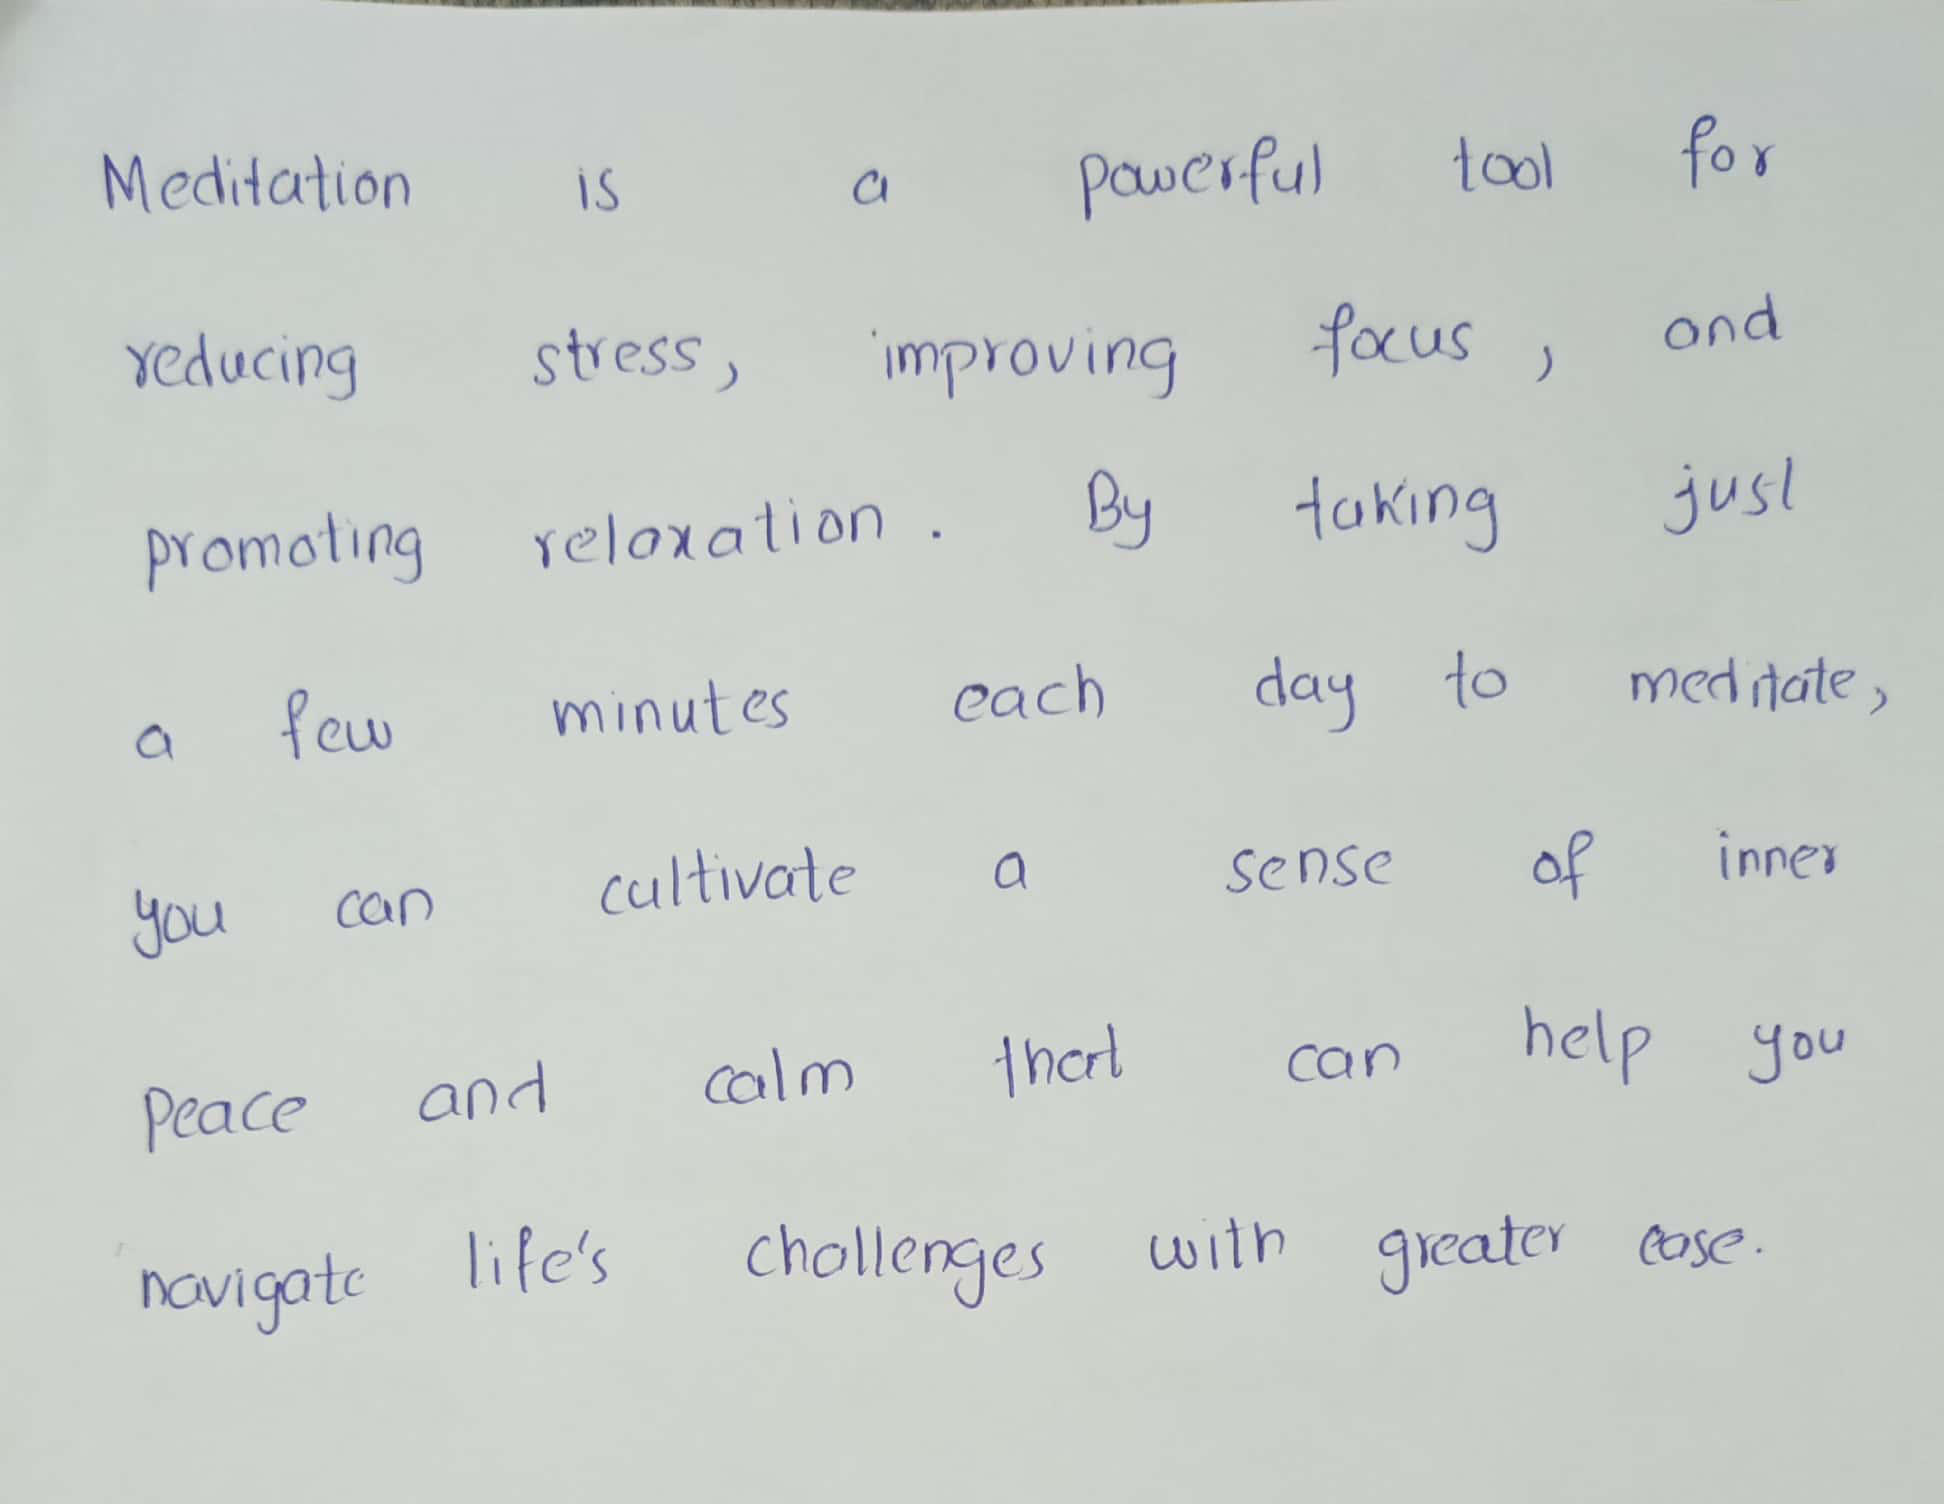 Meditation is a powerful tool for
reducing stress, improving focus, and
promoting relaxation. By taking just
a few minutes each day to meditate,
you can cultivate a sense of inner
peace and calm that can help you
navigate life's challenges with greater ease.